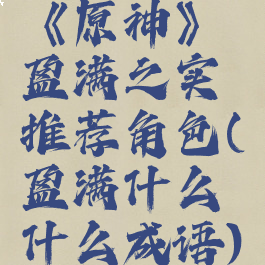 《原神》
盈满之实
推荐角色(
盈满什么
什么成语)